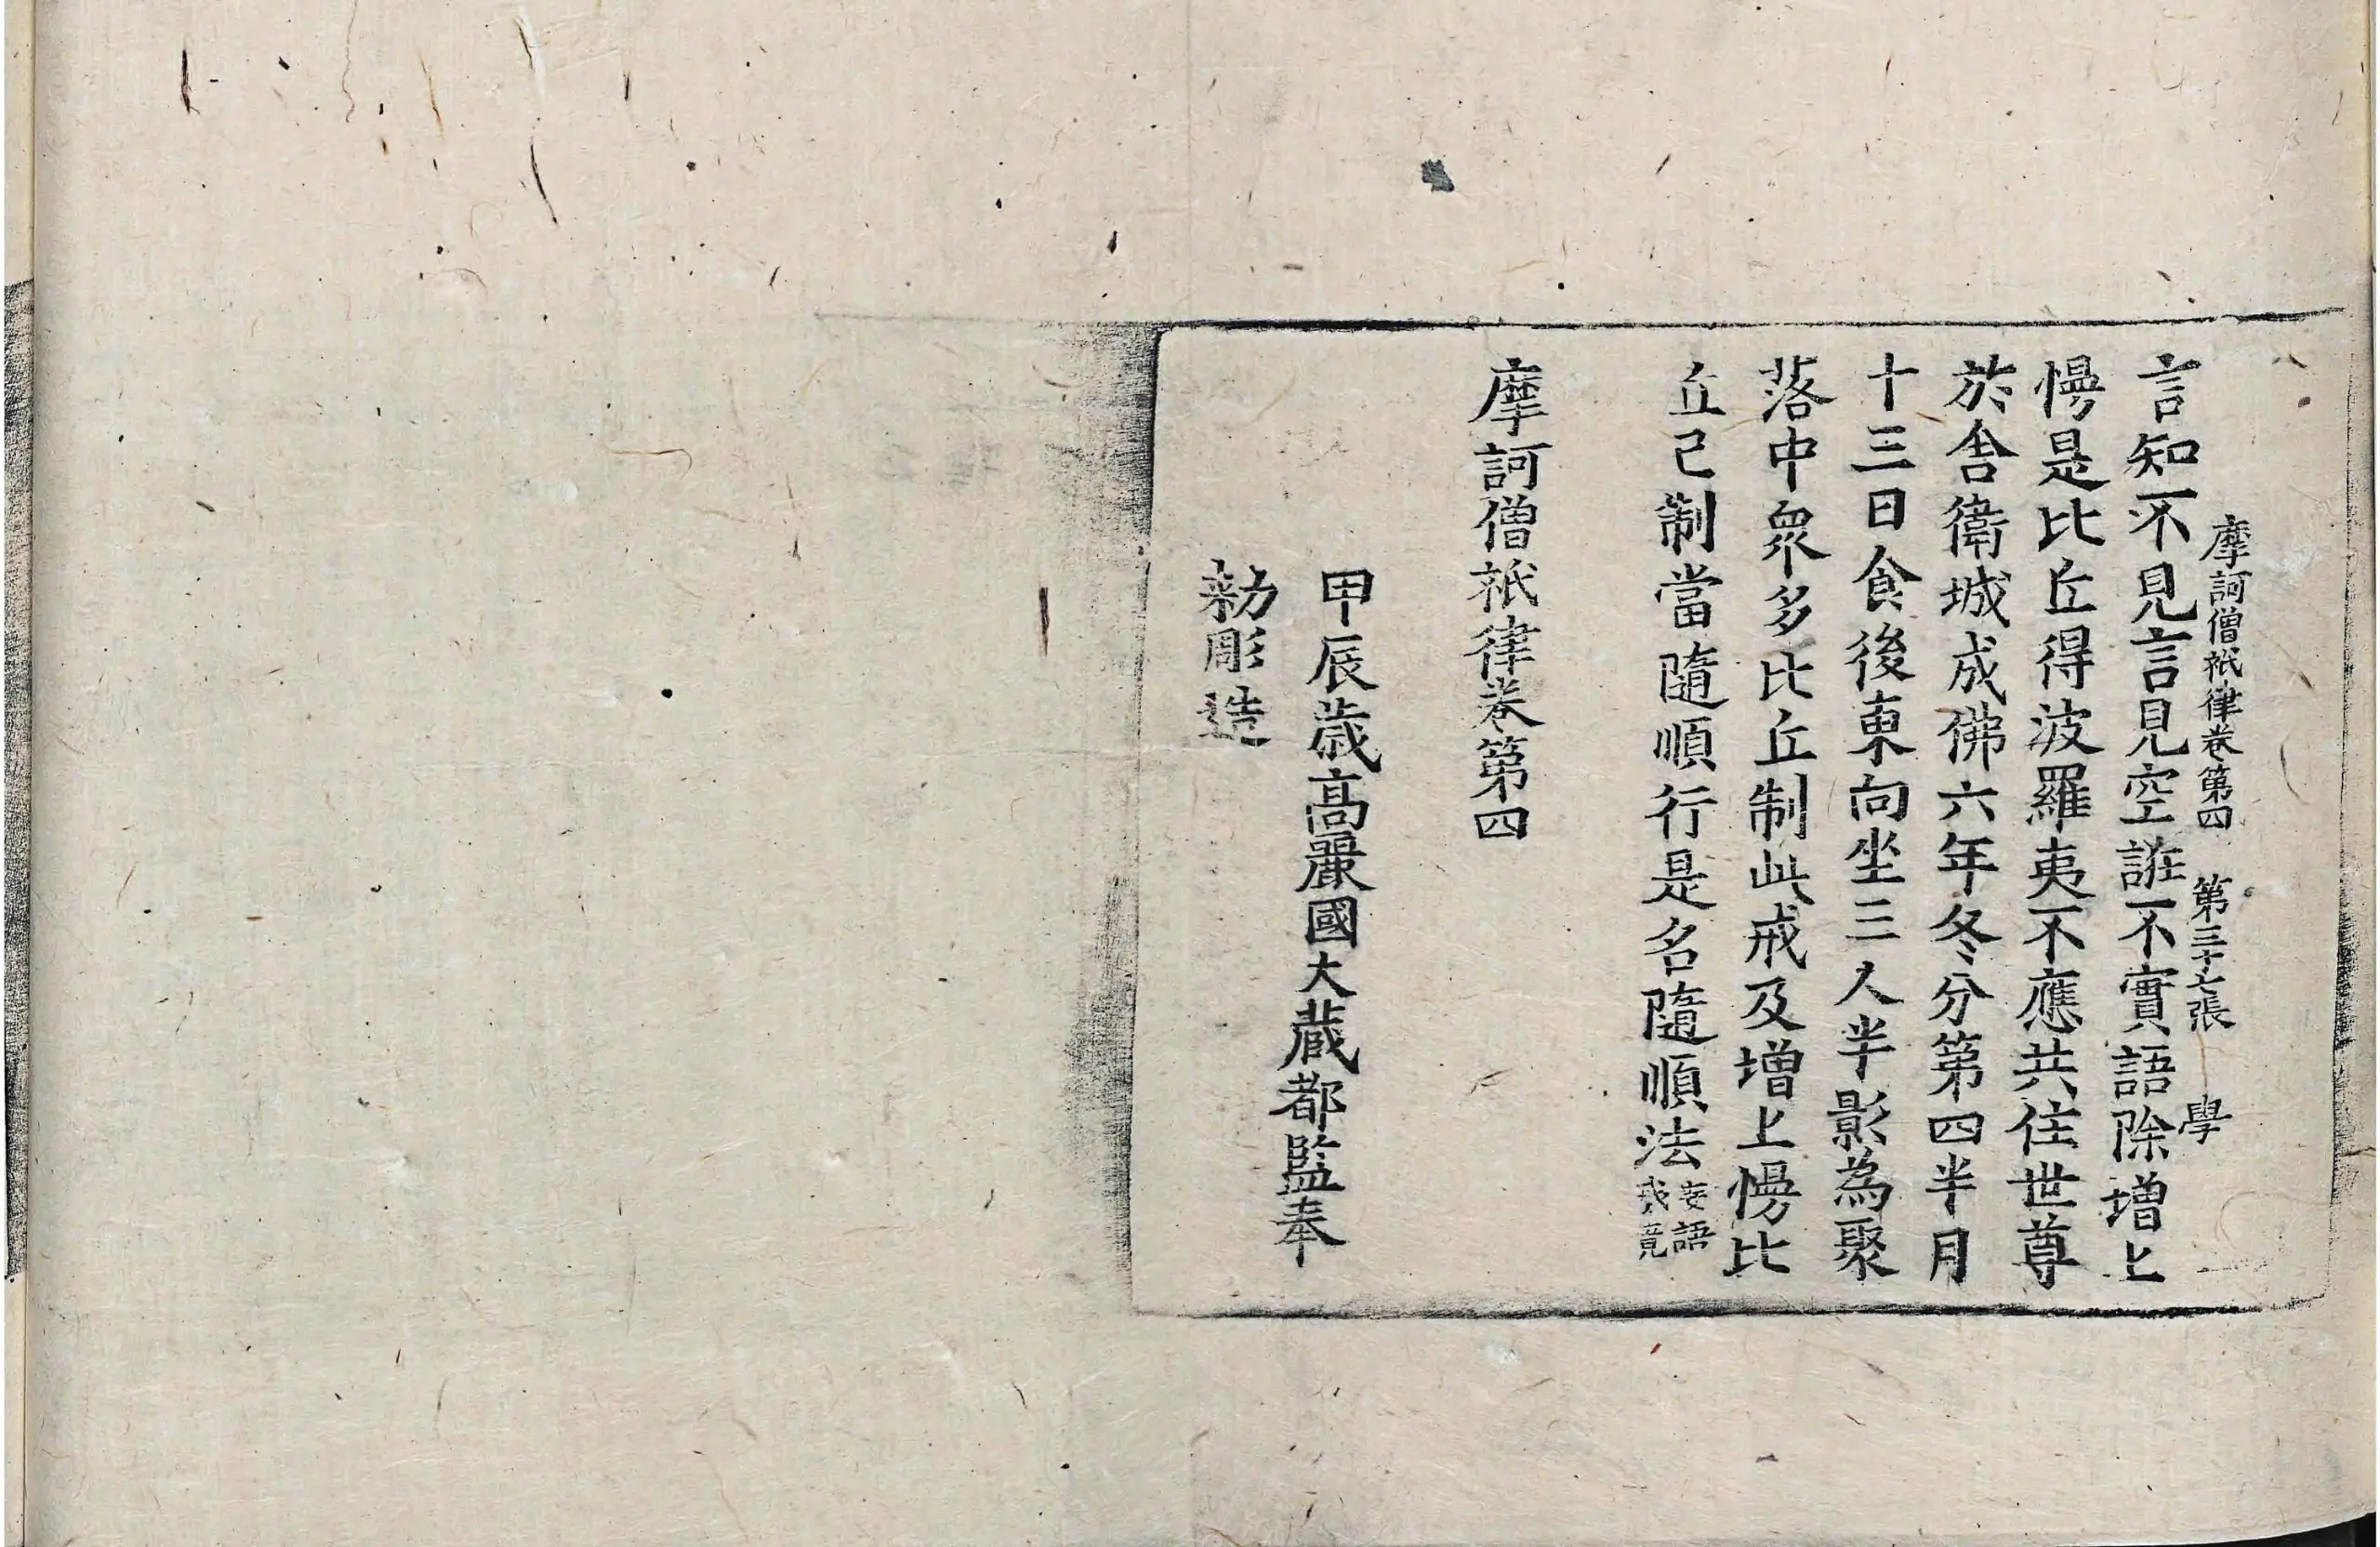 摩訶僧祇律卷第四 第三十七張 學
言知不見言見空誑不實語除增上
慢是比丘得波羅夷不應共住世尊
於舍衛城成佛六年冬分第四半月
十三日食後東向坐三人半影為聚
落中衆多比丘制此戒及增上慢比
丘已制當隨順行是名隨順法妄語戒竟
摩訶僧祇律卷第四
甲辰歲高麗國大藏都監奉
勑彫造